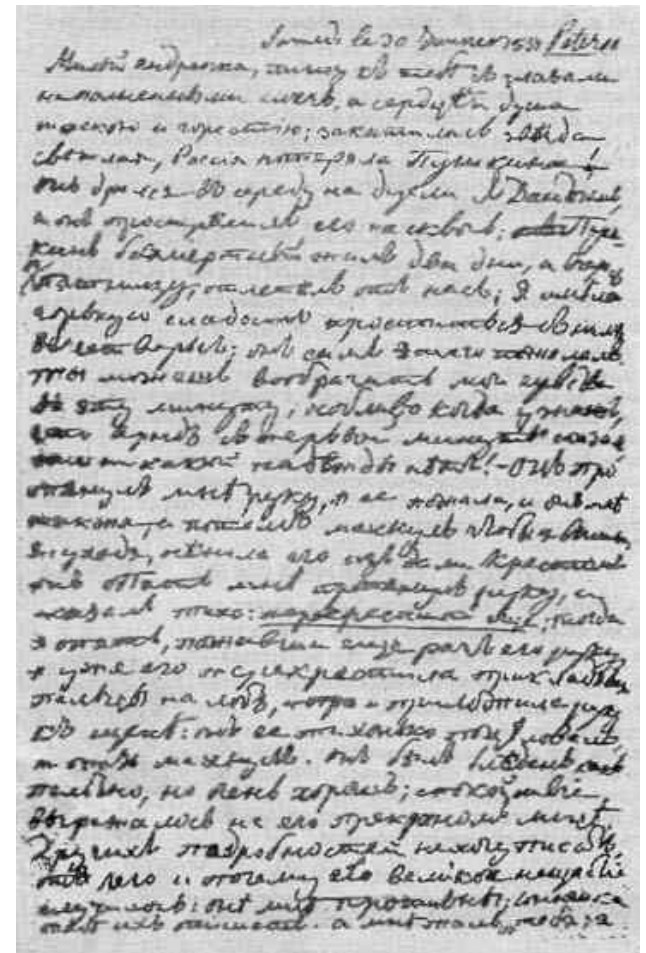 Samedi le 30 Janvier 1837 Petersb
Милый Андрюша, пишу къ тебѣ съ глазами
наполненными слезъ, а сердце и душа
тоскою и горестію; закатилась звѣзда
свѣтлая, Россія потеряла Пушкина!
онъ дрался въ середу на дуели съ Дантезомъ,
и онъ прострѣлилъ его насквозь; Пуш-
кинъ безсмертный жилъ два дни, а вчера
въ пятницу, отлетелъ отъ насъ; я имѣла
горькую сладость проститься съ нимъ
въ четверьгъ; онъ самъ этаго пожелалъ.
ты можешь вообразить мои чувства
въ эту минуту, особливо когда узнаешь,
что Арндъ съ первой минуты сказалъ
что никакой надежды нѣтъ! - Онъ про-
тянулъ мнѣ руку, я ее пожала, и онъ мнѣ
также, и потомъ махнулъ чтобы я вышла
я, уходя, осенила его издали крестомъ
онъ опять мнѣ протянулъ руку, и
сказалъ тихо: перекрестите еще; тогда
я опять, пожавши еще разъ его руку
я уже его перекрестила прикладывая
пальцы на лобъ, и приложила руку
къ щекѣ: онъ ее тихонько поцѣловалъ,
и опять махнулъ. онъ былъ блѣденъ какъ
полотно, но очень хорошъ; спокойствіе
выражалось на его прекрасномъ лицѣ.
Другихъ подробностей нехочу писать,
отъ чего и почему это великое нещастіе
случилось: онѣ мнѣ противны; Сонюшка
тебѣ ихъ опишетъ. а мнѣ жаль тебя; я